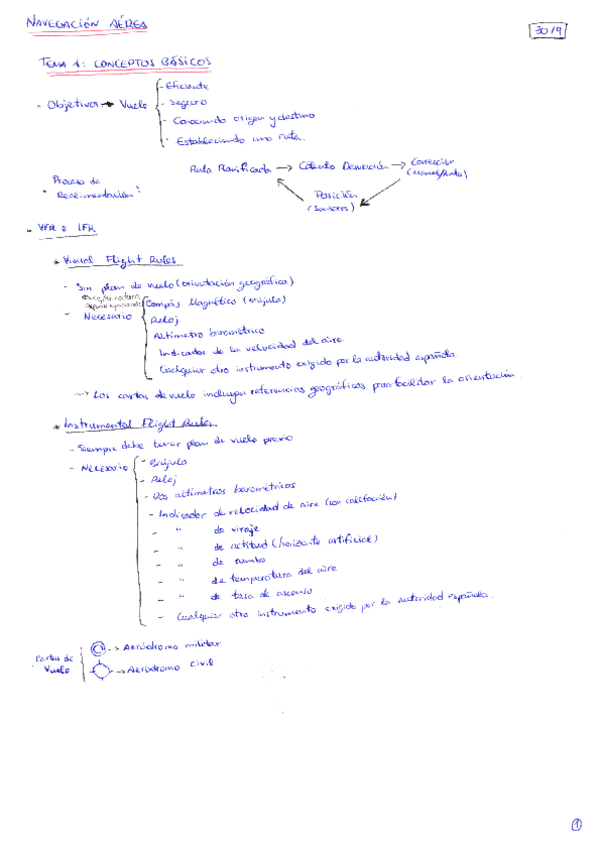 NAVEGACIÓN AÉREA
30/9
TEMA 1: CONCEPTOS BÁSICOS
- Objetivos → Vuelo
- Eficiente
- Seguro
- Conociendo origen y destino
- Estableciendo una ruta.
Proceso de
Realimentación:
Ruta Planificada → Cálculo Desviación → Corrección
(Manual/Auto)
Posición
(Sensores)
- VFR o IFR
Visual Flight Rules
- Sin plan de vuelo (orientación geográfica)
- Necesario
Compás Magnético (brújula)
Reloj
Altímetro barométrico
Indicador de la velocidad del aire
Cualquier otro instrumento exigido por la autoridad española.
→ Las cartas de vuelo incluyen referencias geográficas para facilitar la orientación.
Instrumental Flight Rules
- Siempre debe tener plan de vuelo previo
- Necesario
- Brújula
- Reloj
- Dos altímetros barométricos
- Indicador de velocidad de aire (con calefacción)
- " de viraje
- " de actitud (horizonte artificial)
- " de rumbo
- " de temperatura del aire
- " de tasa de ascenso
- Cualquier otro instrumento exigido por la autoridad española.
Cartas de
Vuelo
→ Aeródromo militar
→ Aeródromo civil
1